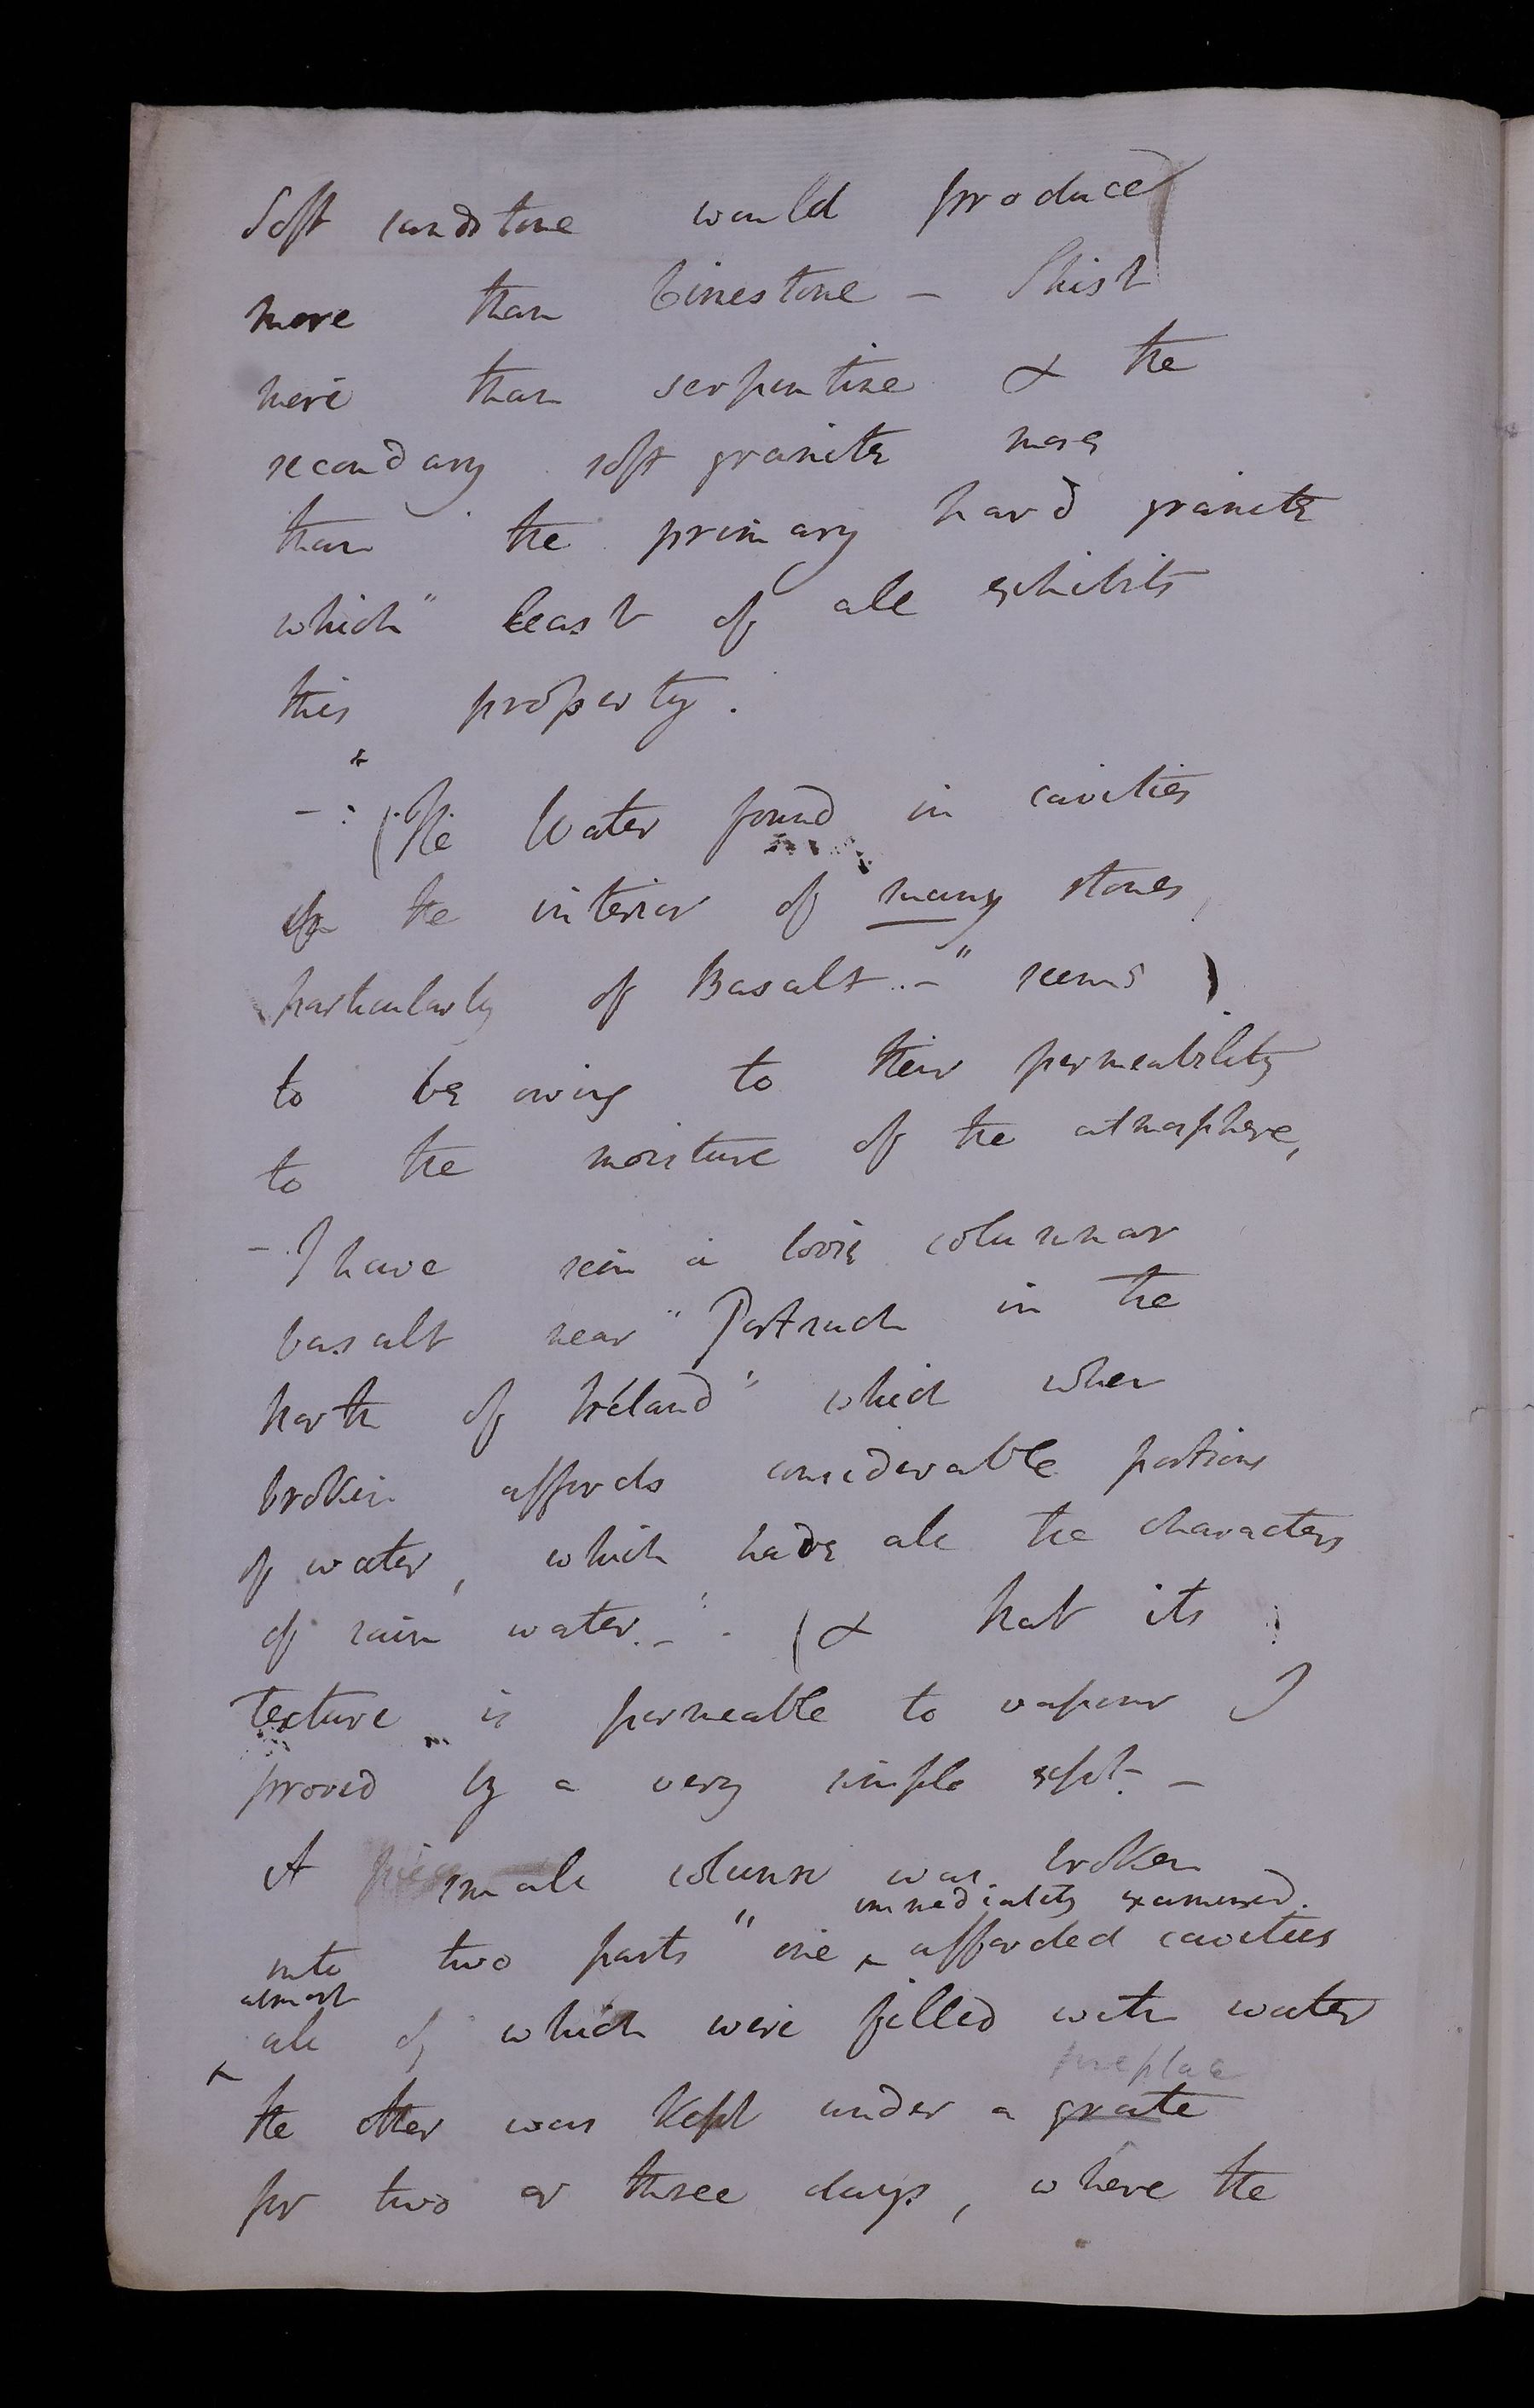 Soft sandstone would produce
more than Limestone – Shist
more than serpentine & the
secondary soft granite more
than the primary hard granite
which" least of all exhibits
this property.
– : (The Water found in cavities
in the interior of many stones,
particularly of Basalt. –" seems )
to be owing to their permeability
to the moisture of the atmosphere,
– I have seen a loose columnar
basalt near "Portrush in the
north of Ireland" which when
broken affords considerable portions
of water, which had all the characters
of rain water. –" – (& that its
texture is permeable to vapour I
proved by a very simple expt. –
A small column was broken
immediately examined.
into two parts " one ^ afforded cavities
almost
^ all of which were filled with water
fireplace
the other was kept under a grate
for two or three days, where the